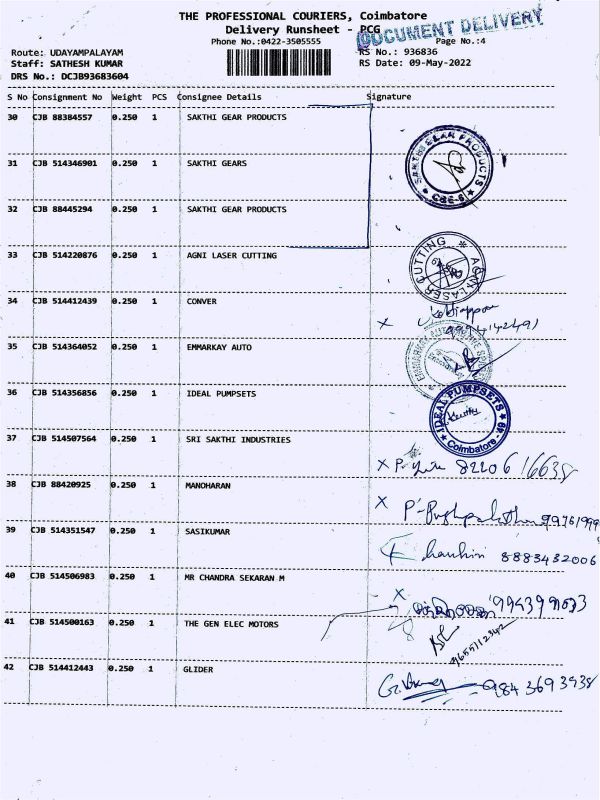 THE PROFESSIONAL COURIERS, Coimbatore
Delivery Runsheet - PCG
DOCUMENT DELIVERY
Phone No.:0422-3505555
Page No.:4
Route: UDAYAMPALAYAM
RS No.: 936836
Staff: SATHESH KUMAR
RS Date: 09-May-2022
DRS No.: DCJB93683604
S No Consignment No Weight PCS Consignee Details Signature
30 CJB 88384557 0.250 1 SAKTHI GEAR PRODUCTS
SAKTHI GEAR PRODUCTS
CBE-6
31 CJB 514346901 0.250 1 SAKTHI GEARS
32 CJB 88445294 0.250 1 SAKTHI GEAR PRODUCTS
33 CJB 514220876 0.250 1 AGNI LASER CUTTING
AGNI LASER CUTTING
34 CJB 514412439 0.250 1 CONVER
35 CJB 514364052 0.250 1 EMMARKAY AUTO
36 CJB 514356856 0.250 1 IDEAL PUMPSETS
IDEAL PUMPSETS
Coimbatore-
37 CJB 514507564 0.250 1 SRI SAKTHI INDUSTRIES
38 CJB 88420925 0.250 1 MANOHARAN
39 CJB 514351547 0.250 1 SASIKUMAR
8883432006
40 CJB 514506983 0.250 1 MR CHANDRA SEKARAN M
41 CJB 514500163 0.250 1 THE GEN ELEC MOTORS
9655112342
42 CJB 514412443 0.250 1 GLIDER
9843693938